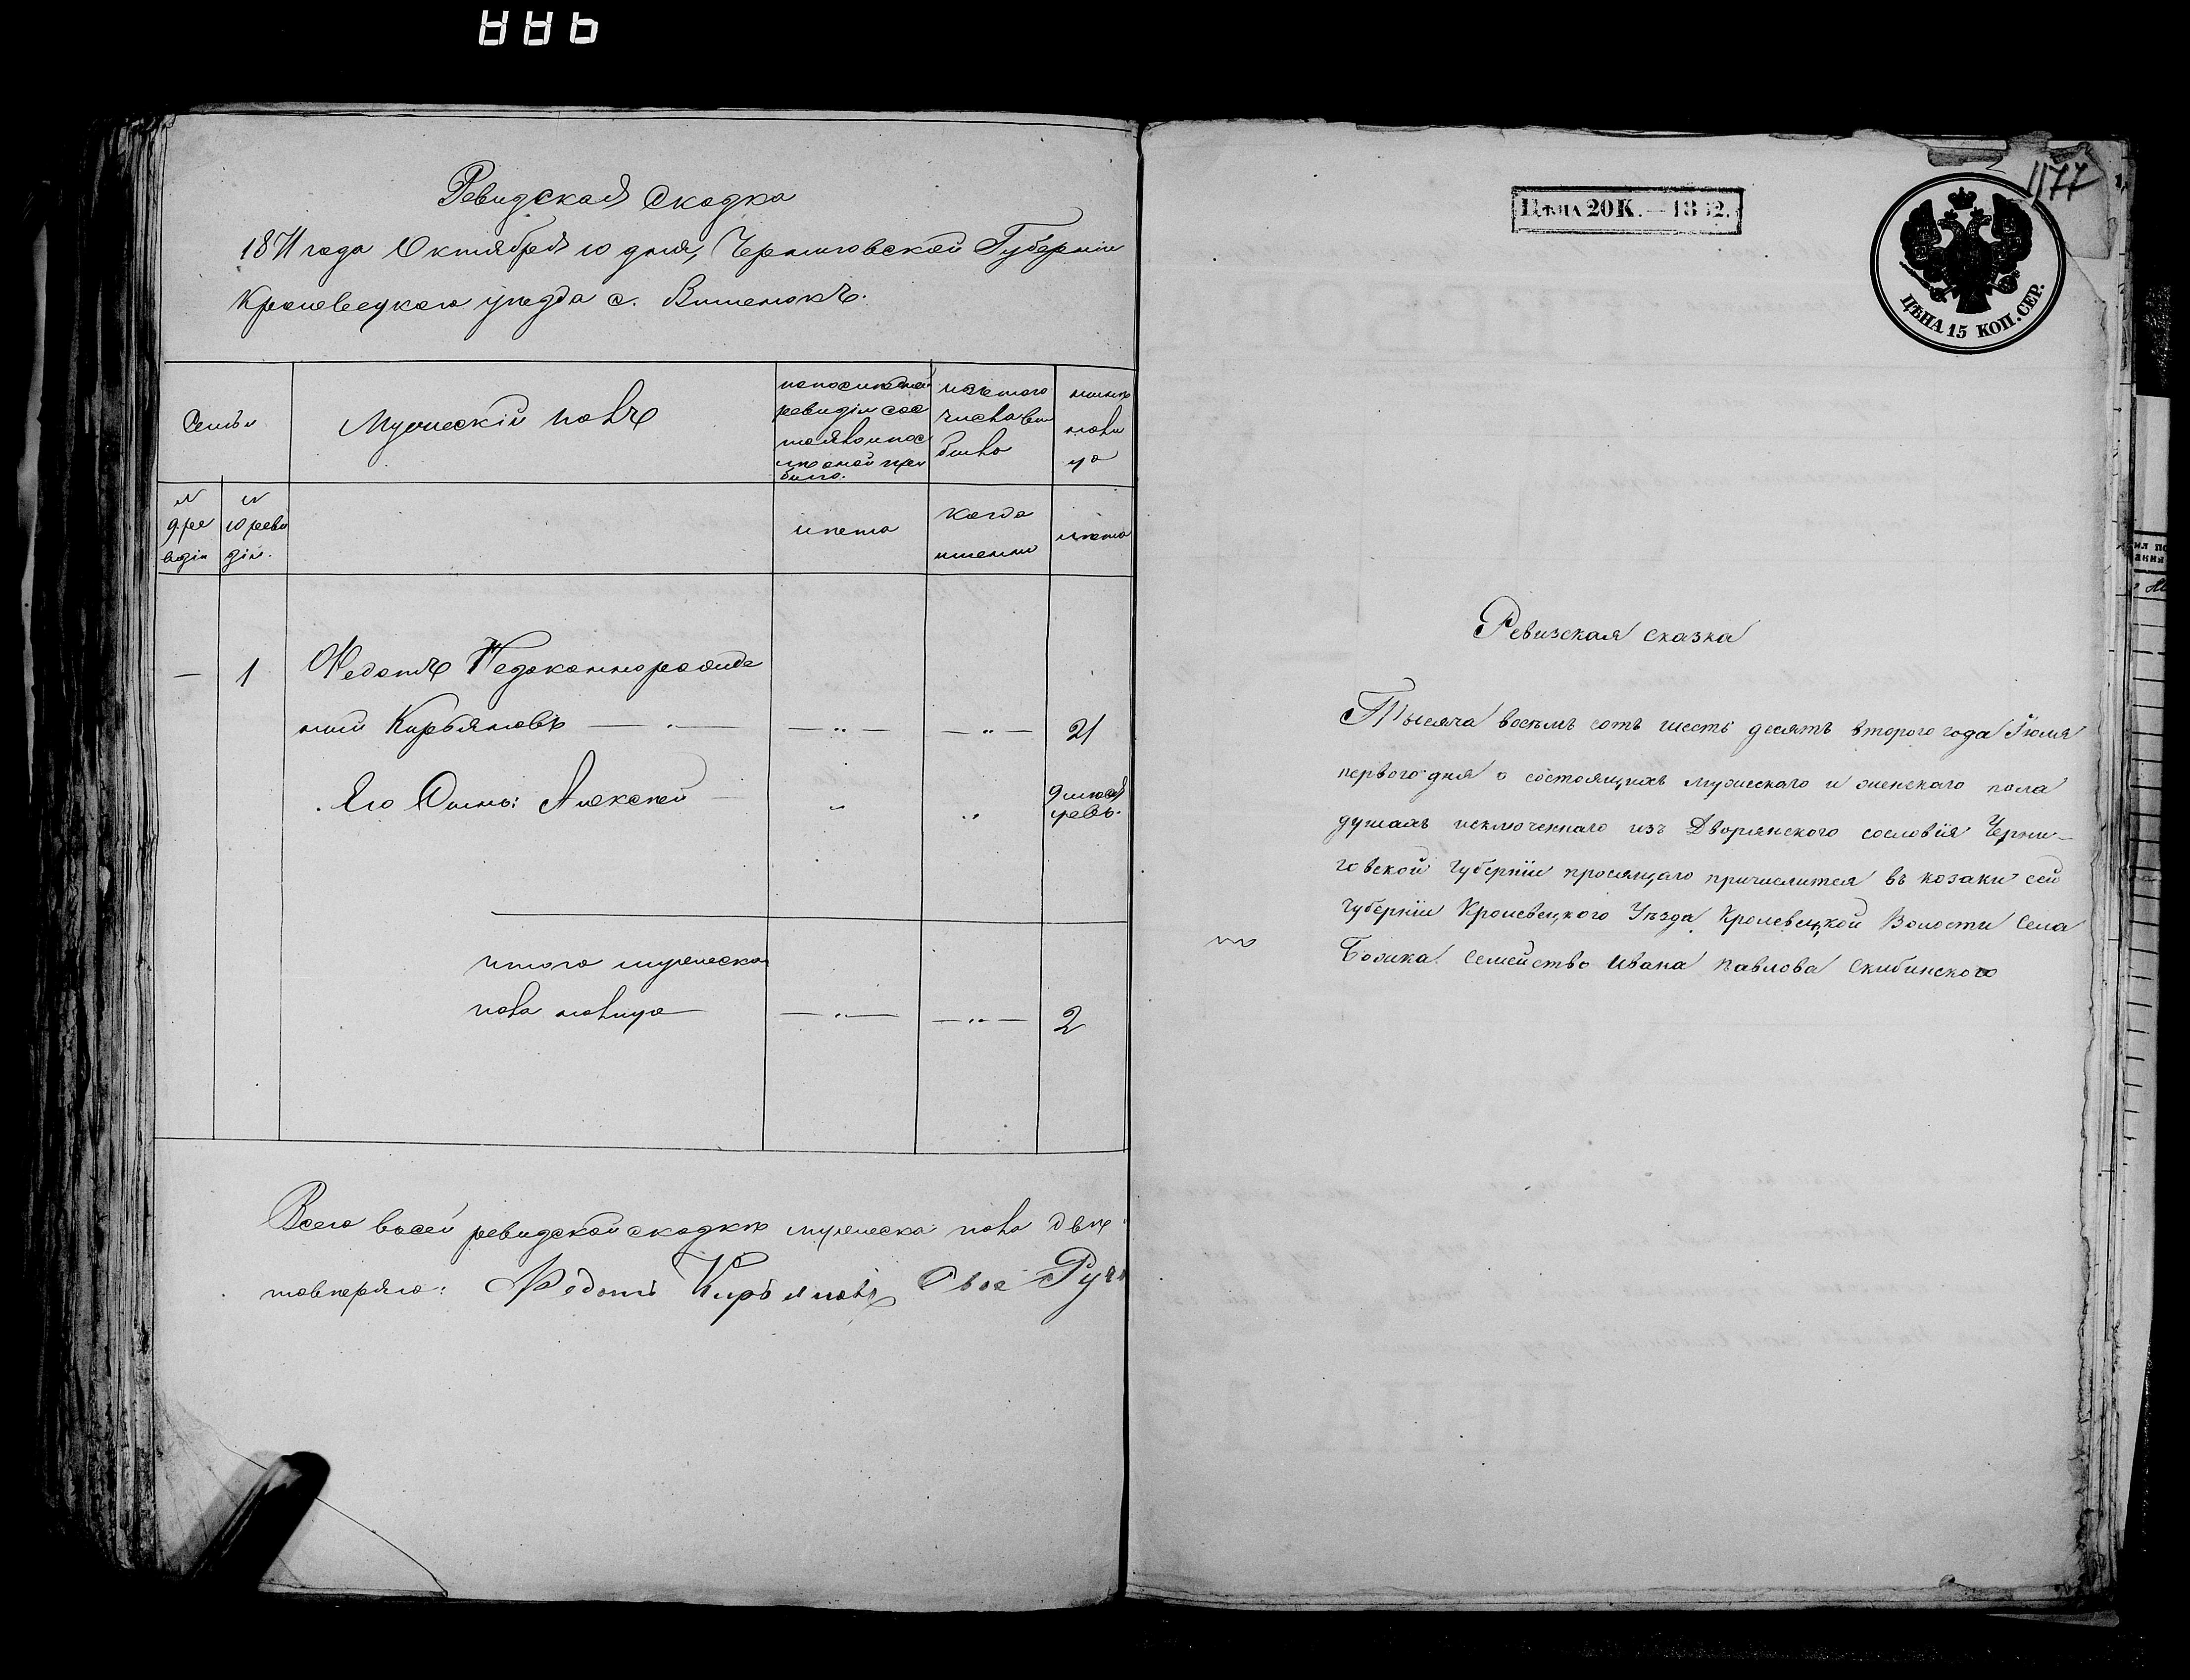 Ревидская Скодка
1871 года Октября 10 дня, Черниговской Губерніи
Кролевецкого уезда с. Вишенокъ.
Семьи
Мужескій полъ
изътого
числа вы
было
ныне
нали
цо
№
9 ре
видіи
№
10 реви
діи.
лета
когда
именно
лета
— 1 Федотъ
Кирьяновъ — „ — — „ — — „ — 21
Его Сынъ: Алексей — „ „
итого мужеска
пола налицо — „ — — „ — 2
Всего высей ревидской скодке мужеска пола две
Федотъ Кирьяновъ Свое Руч
1177
ЦѢНА 20 К. — 18 2.
ЦѢНА 15 КОП. СЕР.
Ревизская сказка
Тысяча восѣмъ сотъ шесть десятъ второго года Іюля
первого дня о состоящихъ мужескаго и женскаго пола
душахъ исключеннаго изъ Дворянского сословія Черни-
говской губерніи просящаго причислится въ козаки сей
губерніи Кролевецкого Уѣзда Кролевецкой Волости Села
Божка семейство Ивана Павлова Скибинского